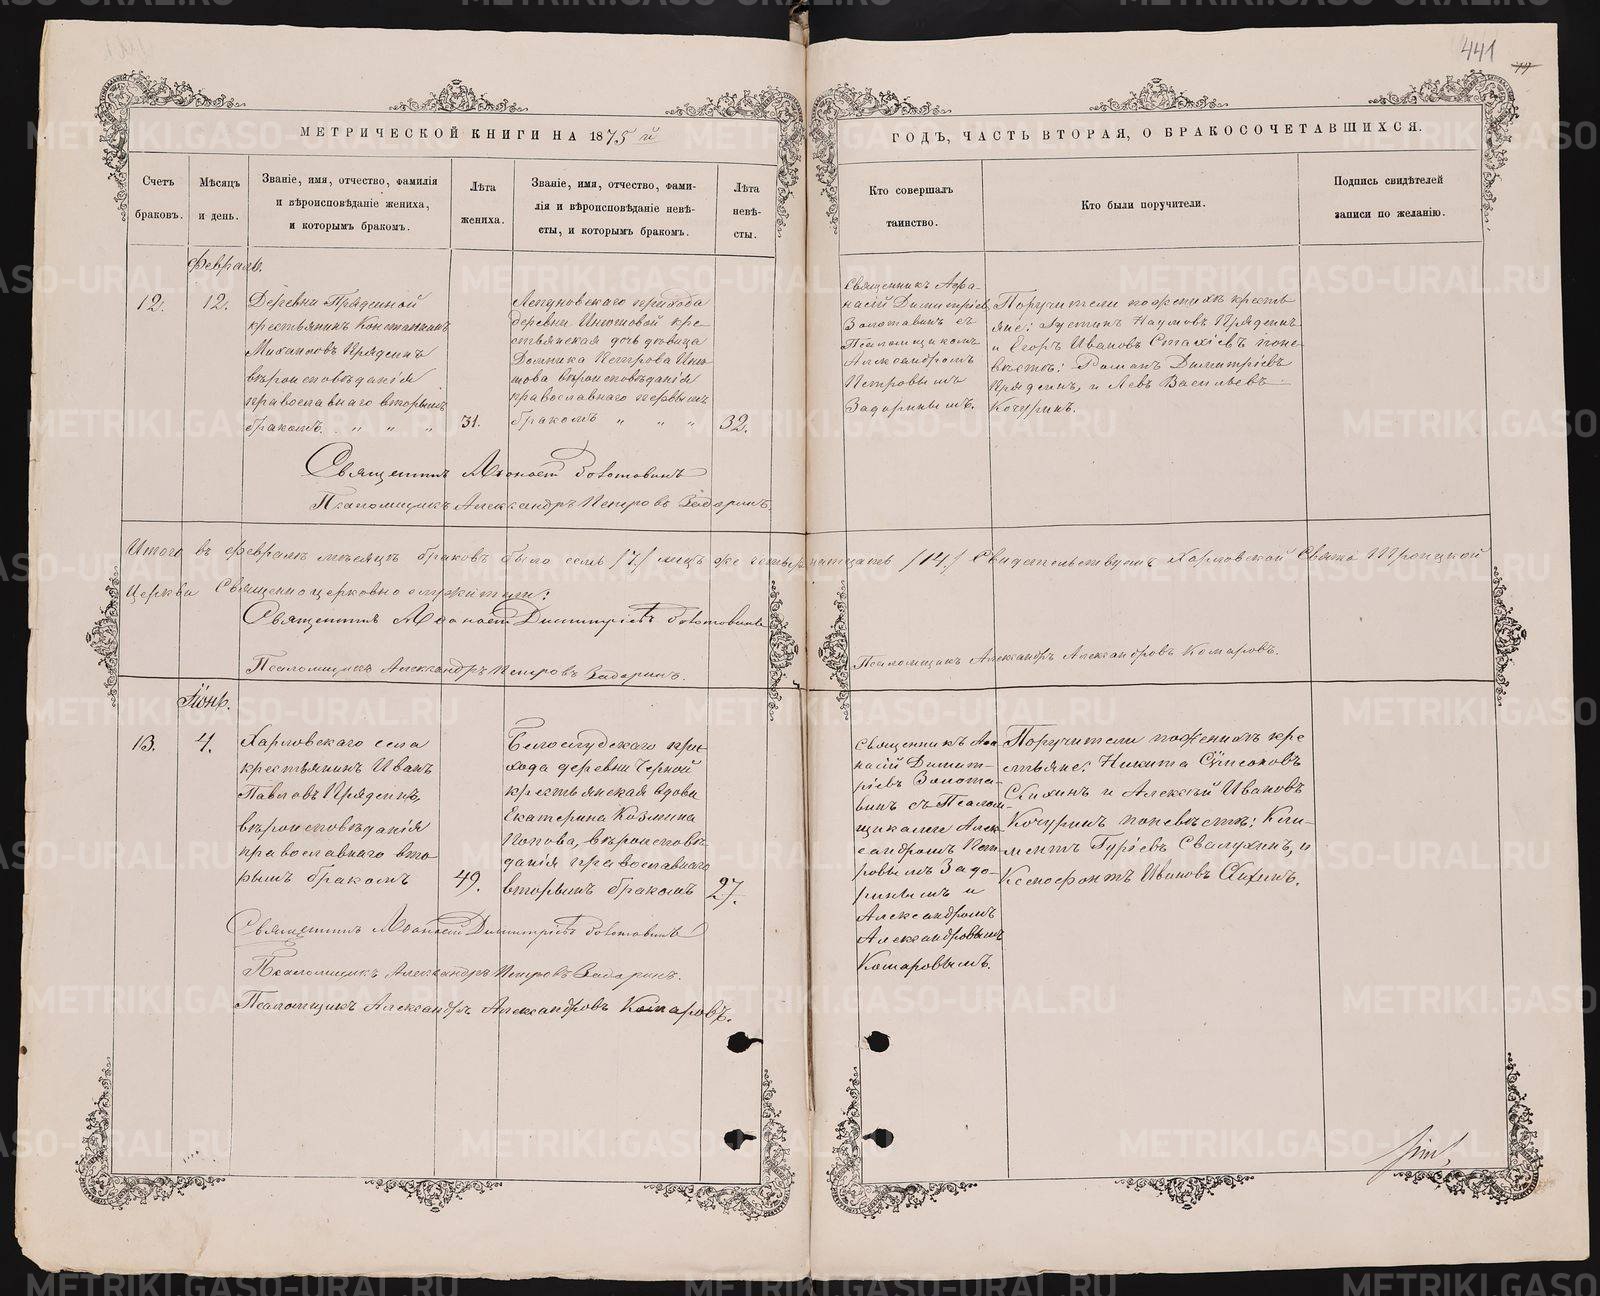 441
МЕТРИЧЕСКОЙ КНИГИ НА 1875 й
ГОДЪ, ЧАСТЬ ВТОРАЯ, О БРАКОСОЧЕТАВШИХСЯ.
Счетъ
браковъ.
Мѣсяцъ
и день.
Званіе, имя, отчество, фамилія
и вѣроисповѣданіе жениха,
и которымъ бракомъ.
Лѣта
жениха.
Званіе, имя, отчество, фами-
лія и вѣроисповѣданіе невѣ-
сты, и которымъ бракомъ.
Лѣта
невѣ-
сты.
Кто совершалъ
таинство.
Кто были поручители.
Подпись свидѣтелей
записи по желанію.
Февраль.
12.
12.
Деревни Пряденной
крестьянинъ Константинъ
Михаиловъ Пряденъ
вѣроисповѣданія
православнаго вторымъ
бракомъ
31.
прихода
деревни крe-
стьянская дочь дѣвица
Домника Петрова
вѣроисповѣданія
православнаго первымъ
бракомъ
32.
Священникъ Афа-
насій Димитріевъ
Золотавинъ съ
Псаломщикомъ
Александромъ
Петровымъ
Задоринымъ.
Поручители по женихѣ кресть-
яне: Густинъ Наумовъ Пряденъ
и Егоръ Ивановъ Стахіевъ по не-
вѣстѣ: Романъ Димитріевъ
Пряденъ, и Левъ Васильевъ
Кочуринъ.
Священникъ Афонасій Золотавинъ
Псаломщикъ Александръ Петровъ Задоринъ.
Итого въ февралѣ мѣсяцѣ браковъ было семь /7/ лицъ же четырнатцать /14./ Свидетельствуемъ Харловской Свято Троицкой
Церкви Священноцерковнослужители:
Священникъ Афонасій Димитріевъ Золотавинъ
Псаломщикъ Александръ Петровъ Задоринъ.
Псаломщикъ Александръ Александровъ Комаровъ.
Іюнь.
13.
4.
Харловскаго села
крестьянинъ Иванъ
Павловъ Пряденъ,
вѣроисповѣданія
православнаго вто-
рымъ бракомъ
49.
Белослудскаго при-
хода деревни Черной
крестьянская вдова
Екатерина Козмина
Попова, вѣроисповѣ-
данія православнаго
вторымъ бракомъ
27.
Священникъ Афа-
насій Димит-
ріевъ Золота-
винъ съ Псалом-
щиками Алек-
сандромъ Пет-
ровымъ Задо-
ринымъ и
Александромъ
Александровымъ
Комаровымъ.
Поручители по женихѣ кре-
стьяне: Никита
Скихинъ и Алексѣй Ивановъ
Кочуринъ по невѣстѣ: Кли-
ментъ Гуріевъ Свалухинъ, и
Ксенофонтъ Ивановъ Скихинъ.
Священникъ Афонасій Димитріевъ Золотавинъ
Псаломщикъ Александръ Петровъ Задоринъ.
Псаломщикъ Александръ Александровъ Комаровъ.
METRIKI.GASO-URAL.RU